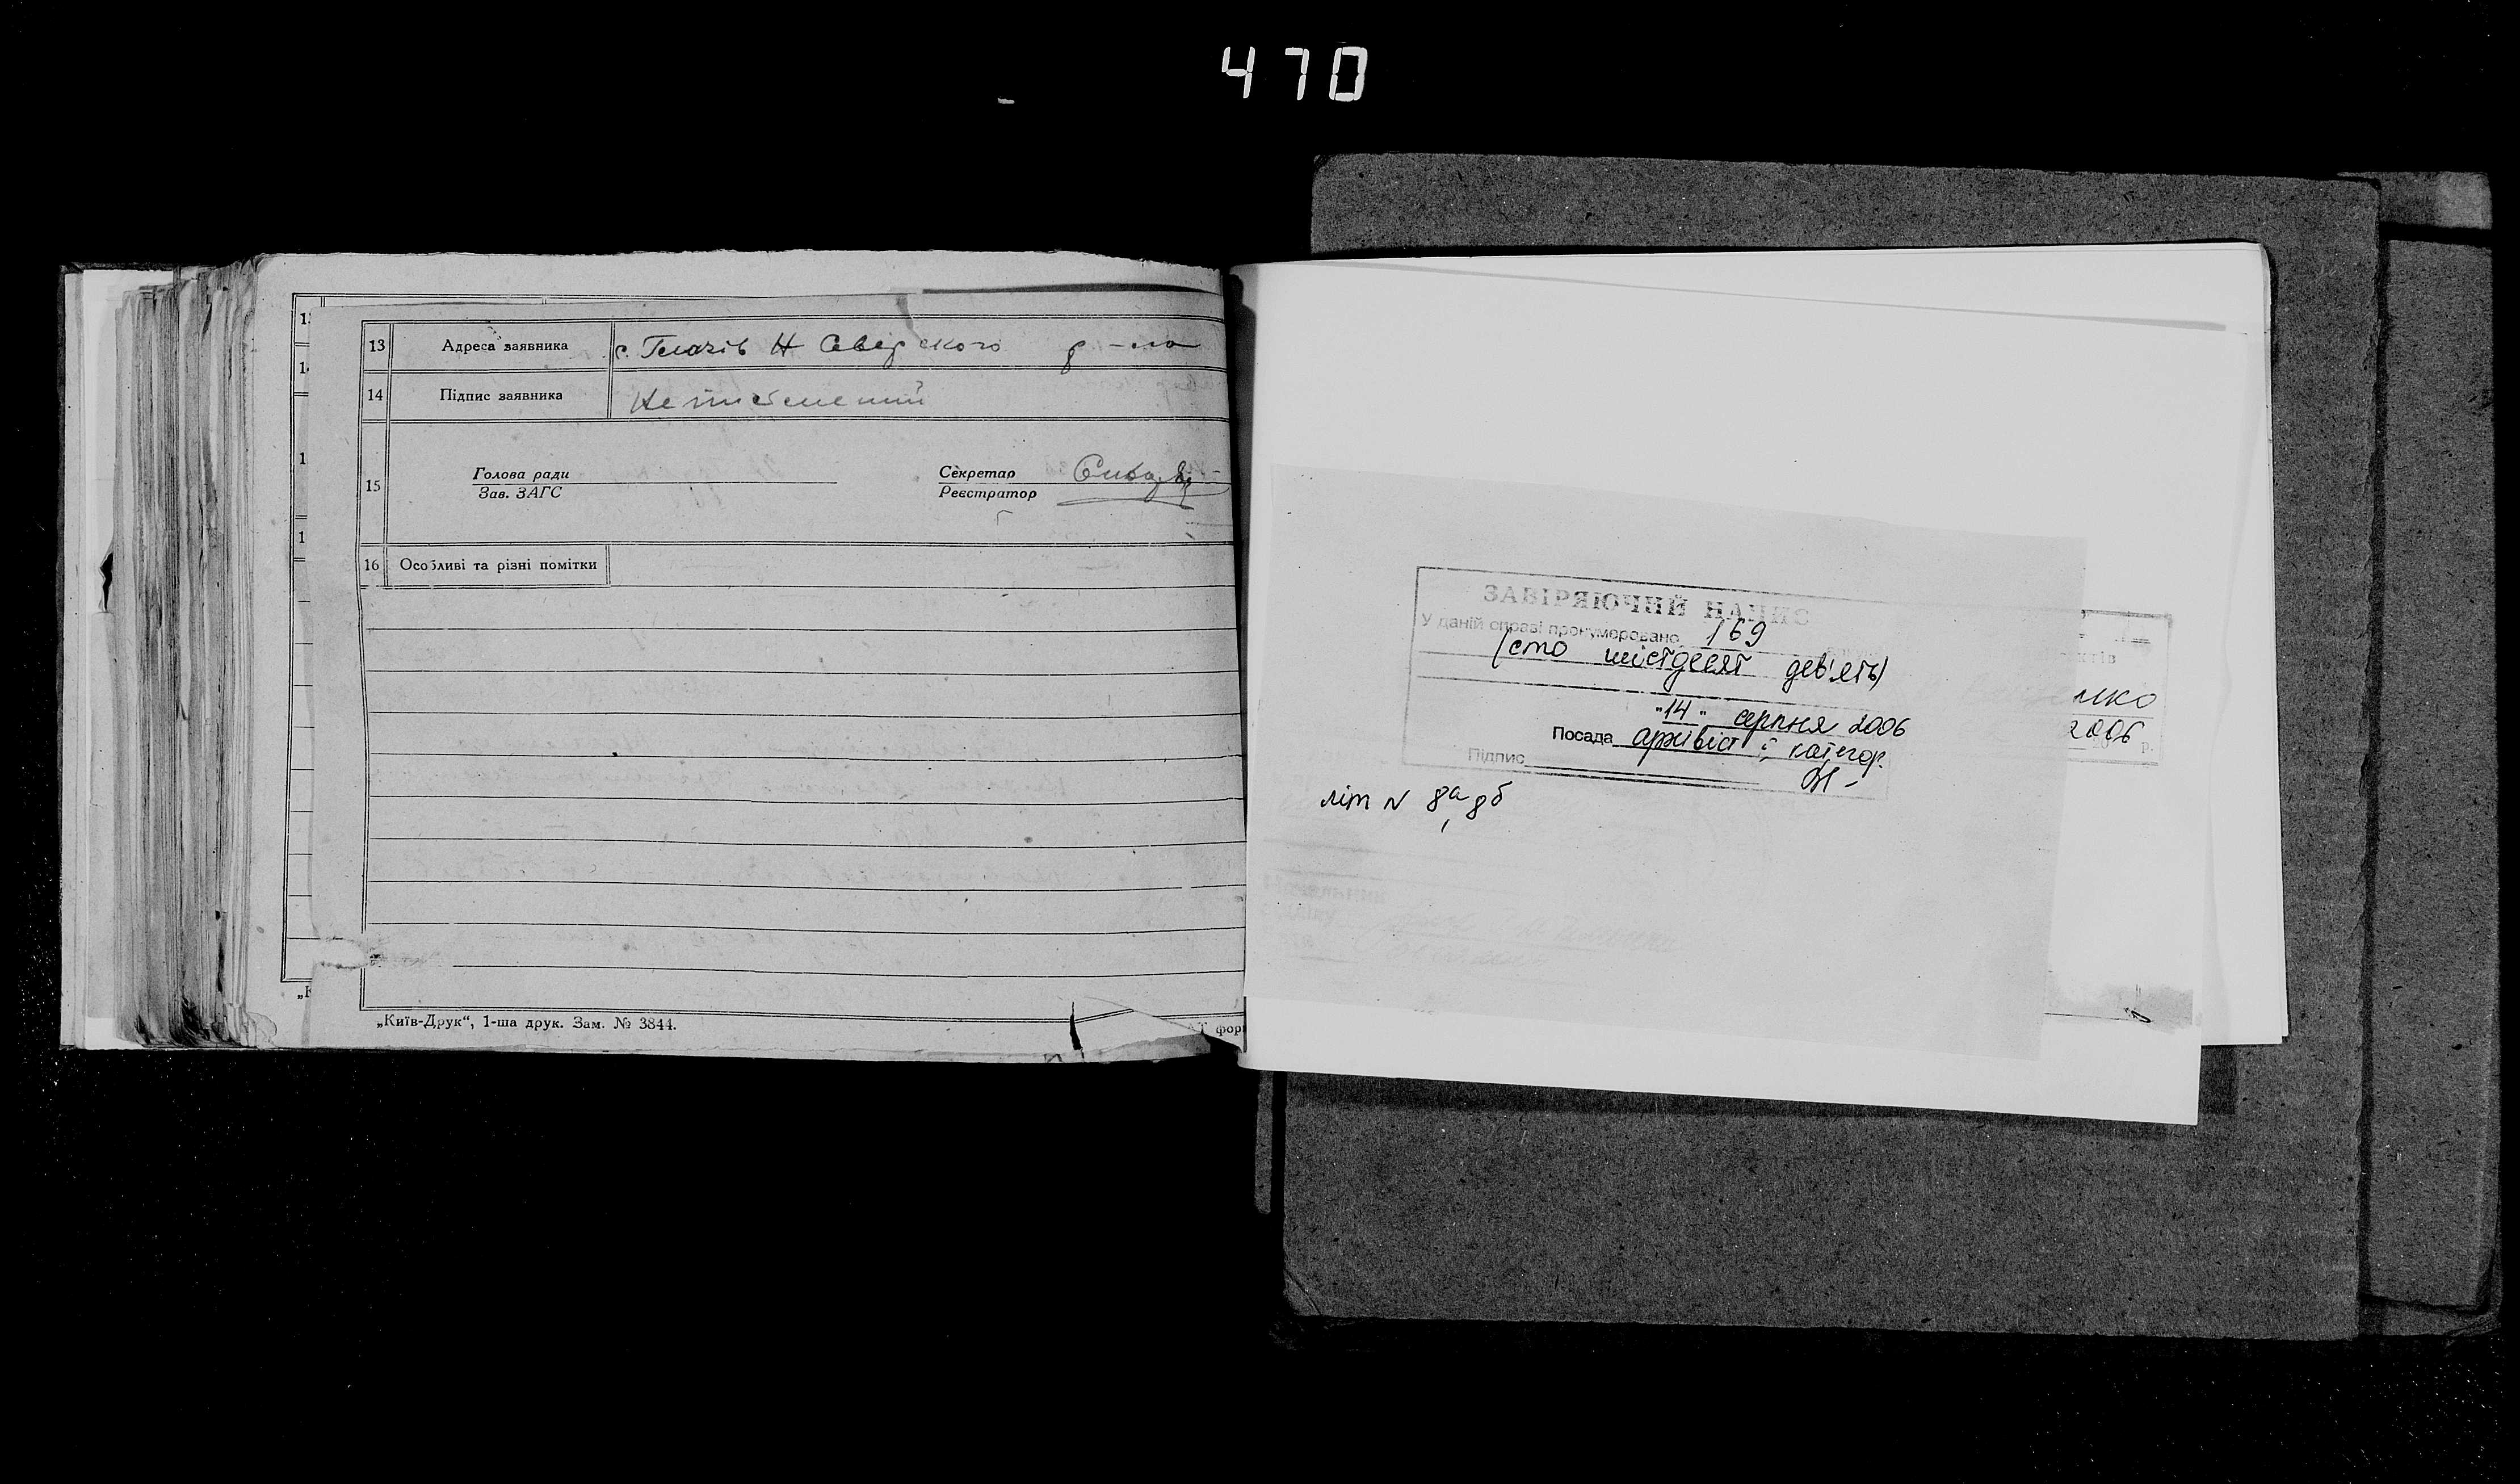 470
13 Адреса заявника с. Н Сіверського р-на
14 Підпис заявника Неписьменний
15 Голова ради Секретар
Зав. ЗАГС Реєстратор
16 Особливі та різні помітки
„Київ-Друк“, 1-ша друк. Зам. № 3844.
ЗАВІРЯЮЧИЙ НАПИС
У даній справі пронумеровано 169
(сто шістдесят дев'ять)
"14" серпня 2006
Посада архівіст і катег.
Підпис
літ N 8а, 8б
2006 р.